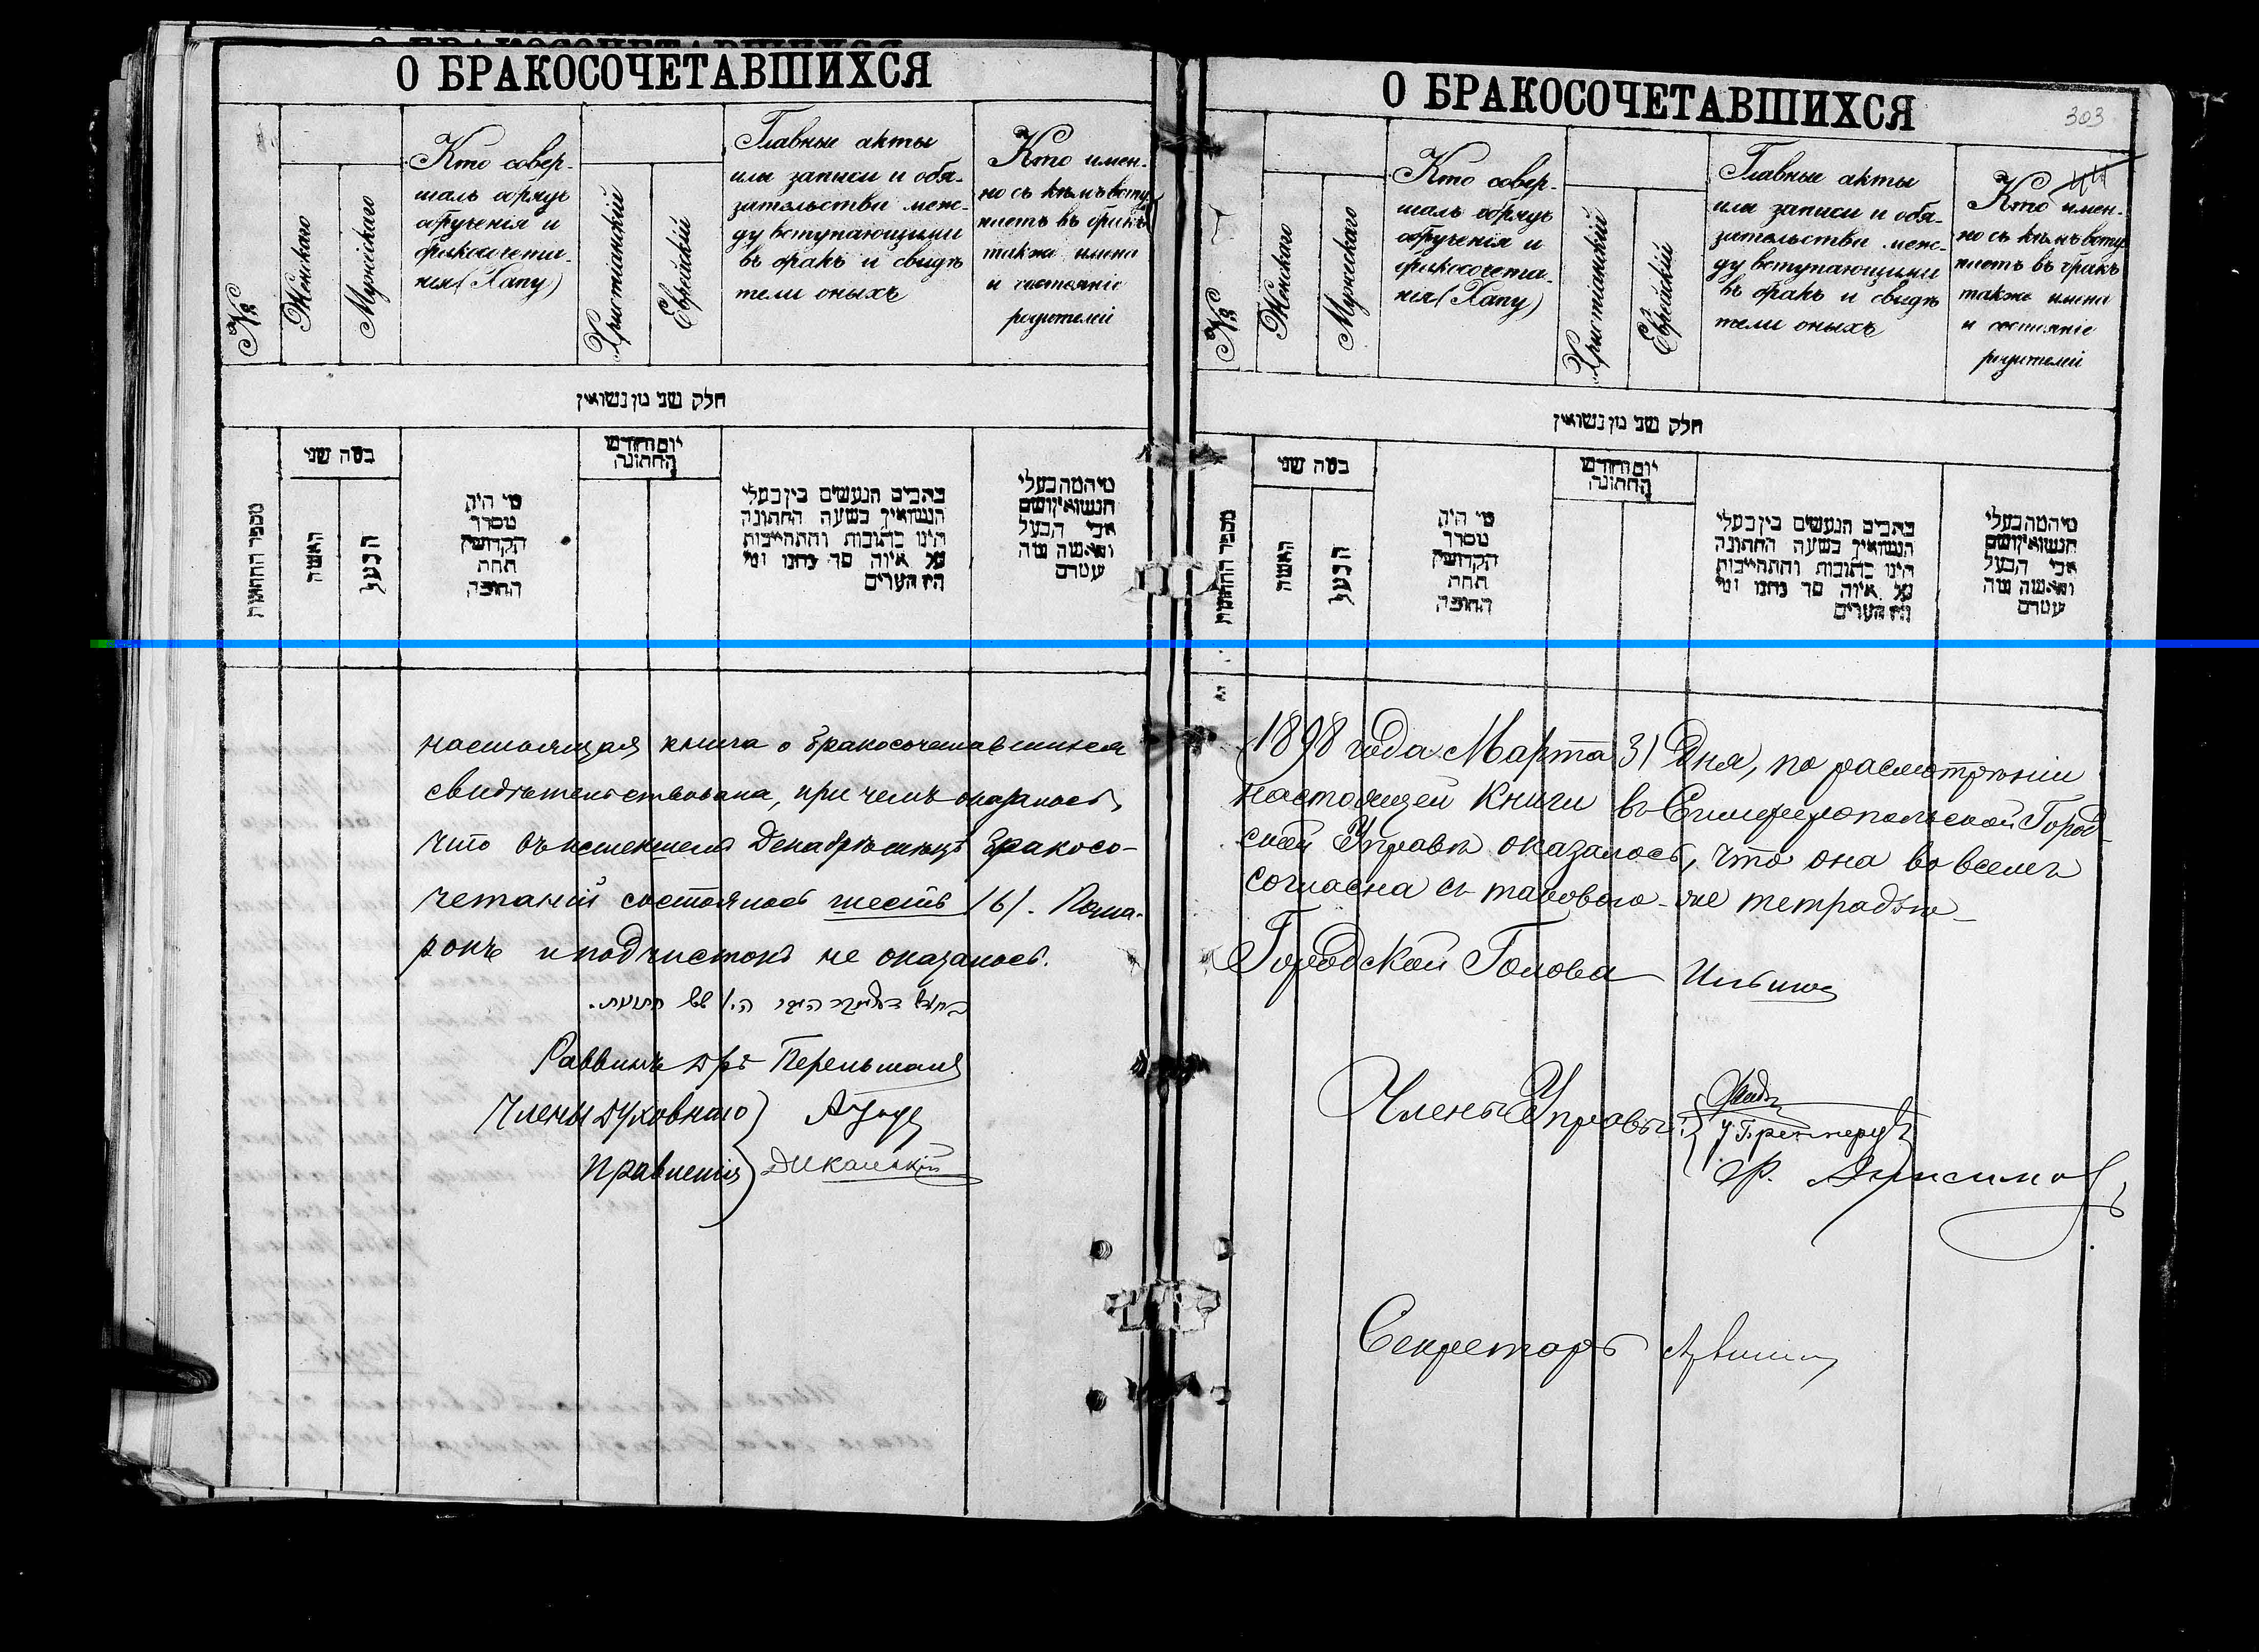 О БРАКОСОЧЕТАВШИХСЯ
№
Женскаго
Мужескаго
Кто совер-
шалъ обрядъ
обрученія и
бракосочета-
нія (Хапу)
Христіанскій
Еврейскій
Главные акты
или записи и обя-
зательства меж-
ду вступающими
въ бракъ и свидѣ
тели оныхъ
Кто имен-
но съ кѣмъ всту
паетъ въ бракъ
также имена
и состояніе
родителей
חלק שני מן נשואין
מספר החתונות
כמה שני
האשה
הבעל
מי היה
מסדר
הקדושין
תחת
החופה
יום וחודש
החתונה
כתבים הנעשים בין בעלי
הנשואין בשעה החתונה
היינו כתובות והתחייבות
על איזה סך נתנו ומי
היו העדים
מי המה בעלי
הנשואין ושם
אבי הבעל
והאשה מה
настоящая книга о бракосочетавшихся
свидѣтельствована, при чемъ оказалось,
что въ истекшемъ Декабрѣ мѣсяцѣ бракосо-
четаній состоялось шесть /6/. Пома-
рокъ и подчистокъ не оказалось.
Раввинъ Д-ръ Перельманъ
Члены Духовнаго
Правленія
О БРАКОСОЧЕТАВШИХСЯ
303
№
Женскаго
Мужескаго
Кто совер-
шалъ обрядъ
обрученія и
бракосочета-
нія (Хапу)
Христіанскій
Еврейскій
Главные акты
или записи и обя-
зательства меж-
ду вступающими
въ бракъ и свидѣ
тели оныхъ
Кто имен-
но съ кѣмъ всту
паетъ въ бракъ
также имена
и состояніе
родителей
חלק שני מן נשואין
מספר החתונות
כמה שני
האשה
הבעל
מי היה
מסדר
הקדושין
תחת
החופה
יום וחודש
החתונה
כתבים הנעשים בין בעלי
הנשואין בשעה החתונה
היינו כתובות והתחייבות
על איזה סך נתנו ומי
היו העדים
מי המה בעלי
הנשואין ושם
אבי הבעל
והאשה מה
1898 года Марта 31 Дня, по расмотрѣніи
настоящей книги въ Симферопольской Город-
ской Управѣ оказалось, что она во всемъ
согласна съ таковою-же тетрадью
Городской Голова Ильинъ
Члены Управы:
Секретарь